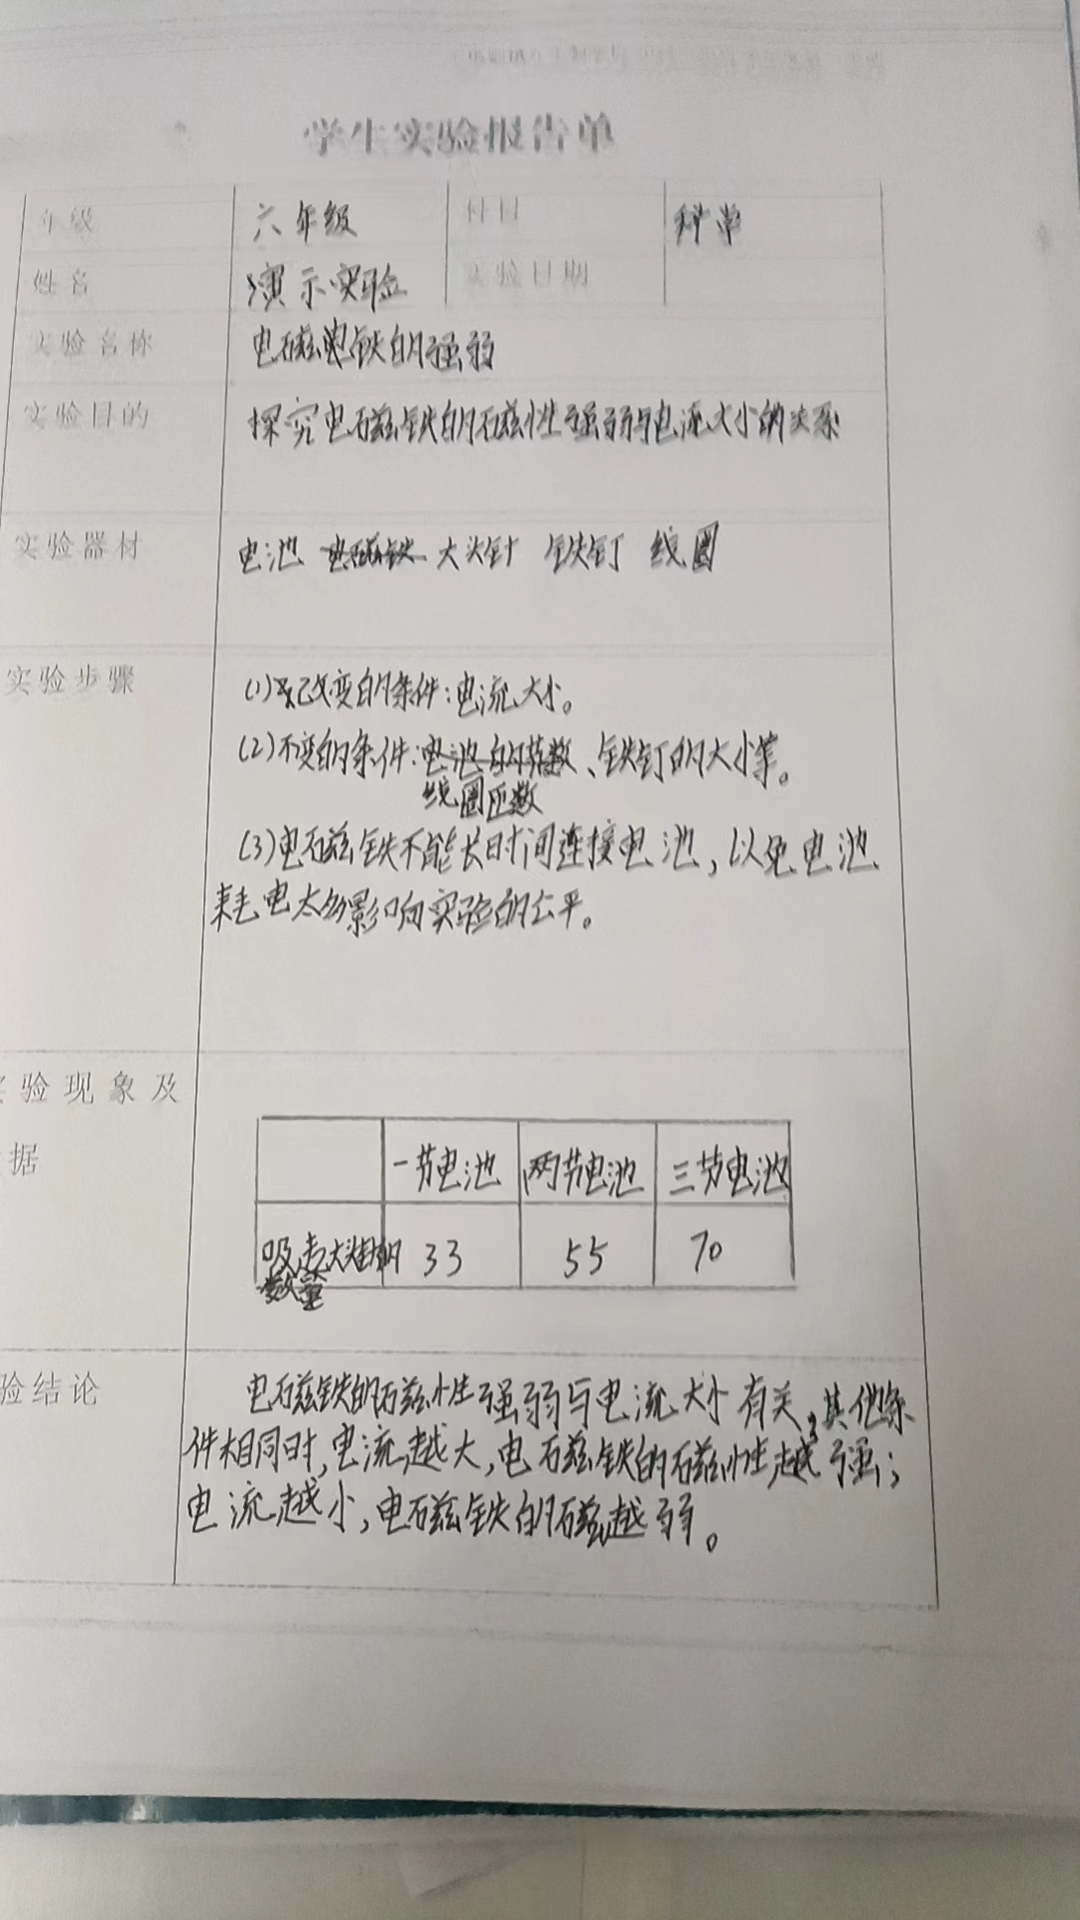 学生实验报告单
年级 六年级 科目 科学
姓名 演示实验 实验日期
实验名称 电磁铁的强弱
实验目的 探究电磁铁的磁性强弱与电流大小的关系
实验器材 电池 电磁铁 大头针 铁钉 线圈
实验步骤 (1)改变的条件:电流大小。
(2)不变的条件:电池的节数、铁钉的大小等。
线圈匝数
(3)电磁铁不能长时间连接电池,以免电池
耗电太多影响实验的公平。
验现象及
据
一节电池 两节电池 三节电池
吸走大头针的 33 55 70
数量
验结论 电磁铁的磁性强弱与电流大小有关,其他条
件相同时,电流越大,电磁铁的磁性越强;
电流越小,电磁铁的磁越弱。